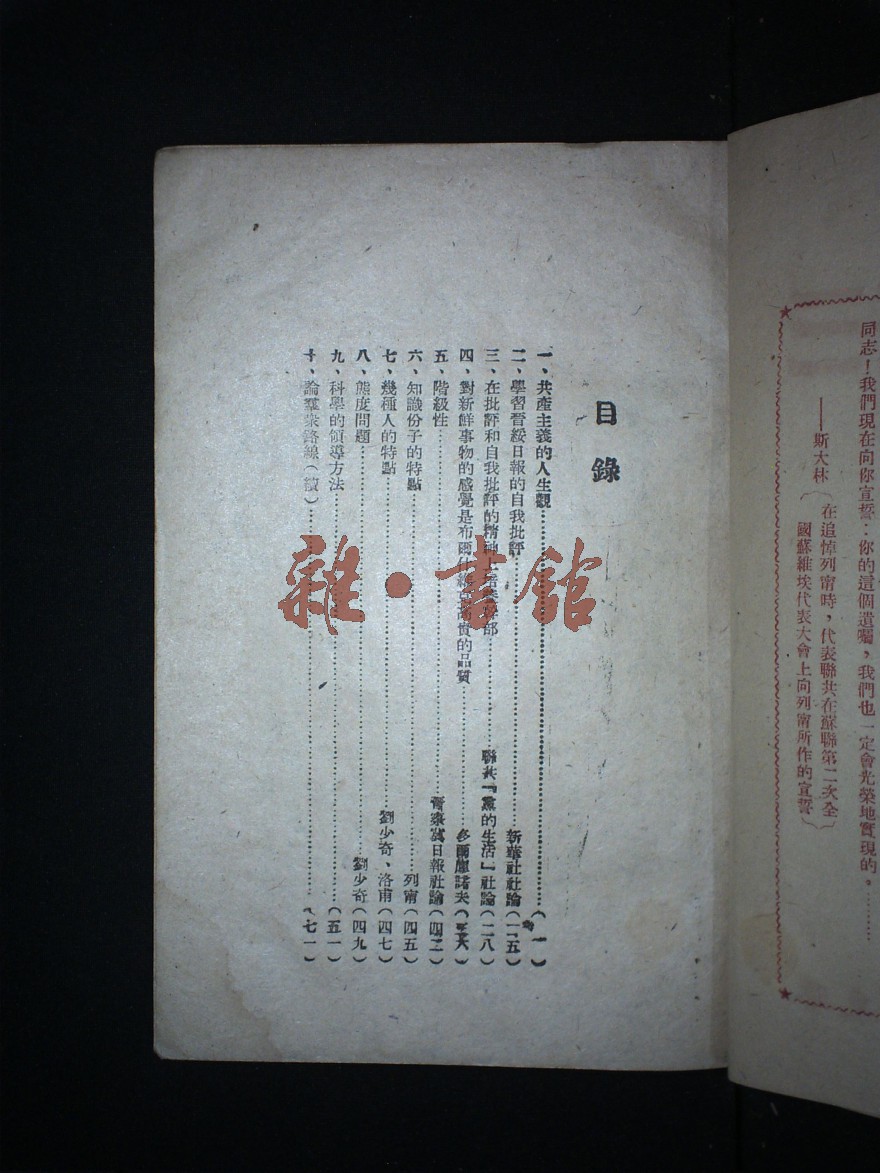 同志！我們現在向你宣誓：你的這個遺囑，我們也一定會光榮地實現的。………
——斯大林（在追悼列甯時，代表聯共在蘇聯第二次全
國蘇維埃代表大會上向列甯所作的宣誓）
目錄
一、共產主義的人生觀………（一）
二、學習晉綏日報的自我批評………新華社社論（一五）
三、在批評和自我批評的精神………部………聯共『黨的生活』社論（二八）
四、對新鮮事物的感覺是布爾什維克………的品質………多爾庫諾夫
五、階級性………晉察冀日報社論
六、知識份子的特點………列甯（四五）
七、幾種人的特點………劉少奇、洛甫（四七）
八、態度問題………劉少奇（四九）
九、科學的領導方法………（五一）
十、論羣衆路線（續）………（七一）
雜·書館